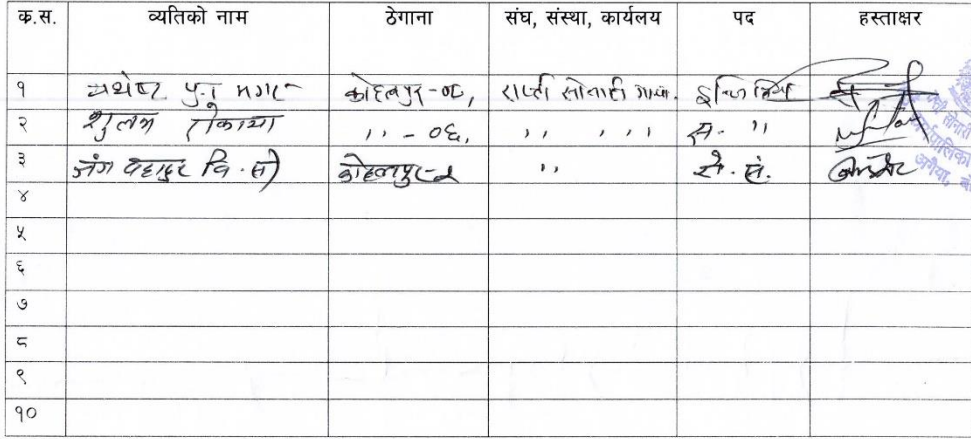 क.स. व्यतिको नाम ठेगाना संघ, संस्था, कार्यलय पद हस्ताक्षर
१ यथेष्ट पुन मगर कोहलपुर-०८, राप्ती सोनारी गापा. इन्जिनियर
२ शुलभ रोकाया ,, - ०६, ,, ,,, स. ,,
३ जंग बहादुर वि. सी कोहलपुर-२ ,,
४
५
६
७
८
९
१०